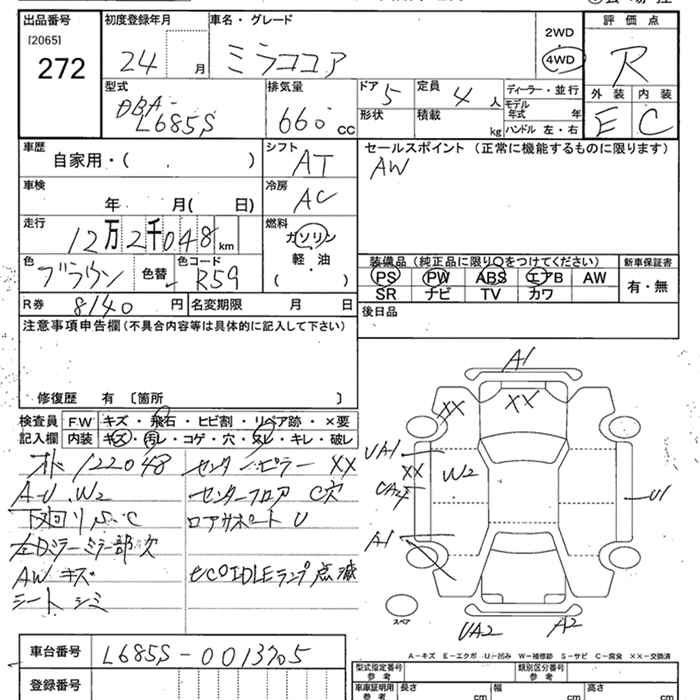 出品番号 初度登録年月 車名・グレード 2WD 評価点
[2065]
272 24 月 ミラココア 4WD R
型式 排気量 ドア 定員 ディーラー・並行 外装 内装
DBA-
L685S 660 CC 5 4 人 モデル年式 年 E C
形状 積載 kg ハンドル 左・右
車歴 シフト セールスポイント (正常に機能するものに限ります)
自家用・( ) AT AW
車検 冷房
年 月( 日) AC
走行 燃料
12万2千048 km ガソリン
軽・油
( )
色 色替 色コード 装備品 (純正品に限り○をつけてください) 新車保証書
ブラウン R59 PS PW ABS エアB AW 有・無
SR ナビ TV カワ
R券 8140 円 名変期限 月 日 後日品
注意事項申告欄 (不具合内容等は具体的に記入して下さい)
修復歴 有 [箇所 ]
検査員 F.W キズ・飛石・ヒビ割・リペア跡・×要
記入欄 内装 キズ・汚レ・コゲ・穴・スレ・キレ・破レ
122048 センターピラー XX
A-U.W2 センターフロア C穴
下廻りS.C ロアサポート U
左Dミラーミラー部欠
AW キズ eCOIDLEランプ点滅
シート シミ
A1
XX XX
UA1
XX W2
UA2
U1
A1
スペア
UA2 A2
A-キズ E-エクボ U-凹み W-補修跡 S-サビ C-腐食 XX-交換済
車台番号 L685S-0013705
登録番号
型式指定番号 参考 類別区分番号 参考
車庫証明用 参考 長さ cm 幅 cm 高さ cm